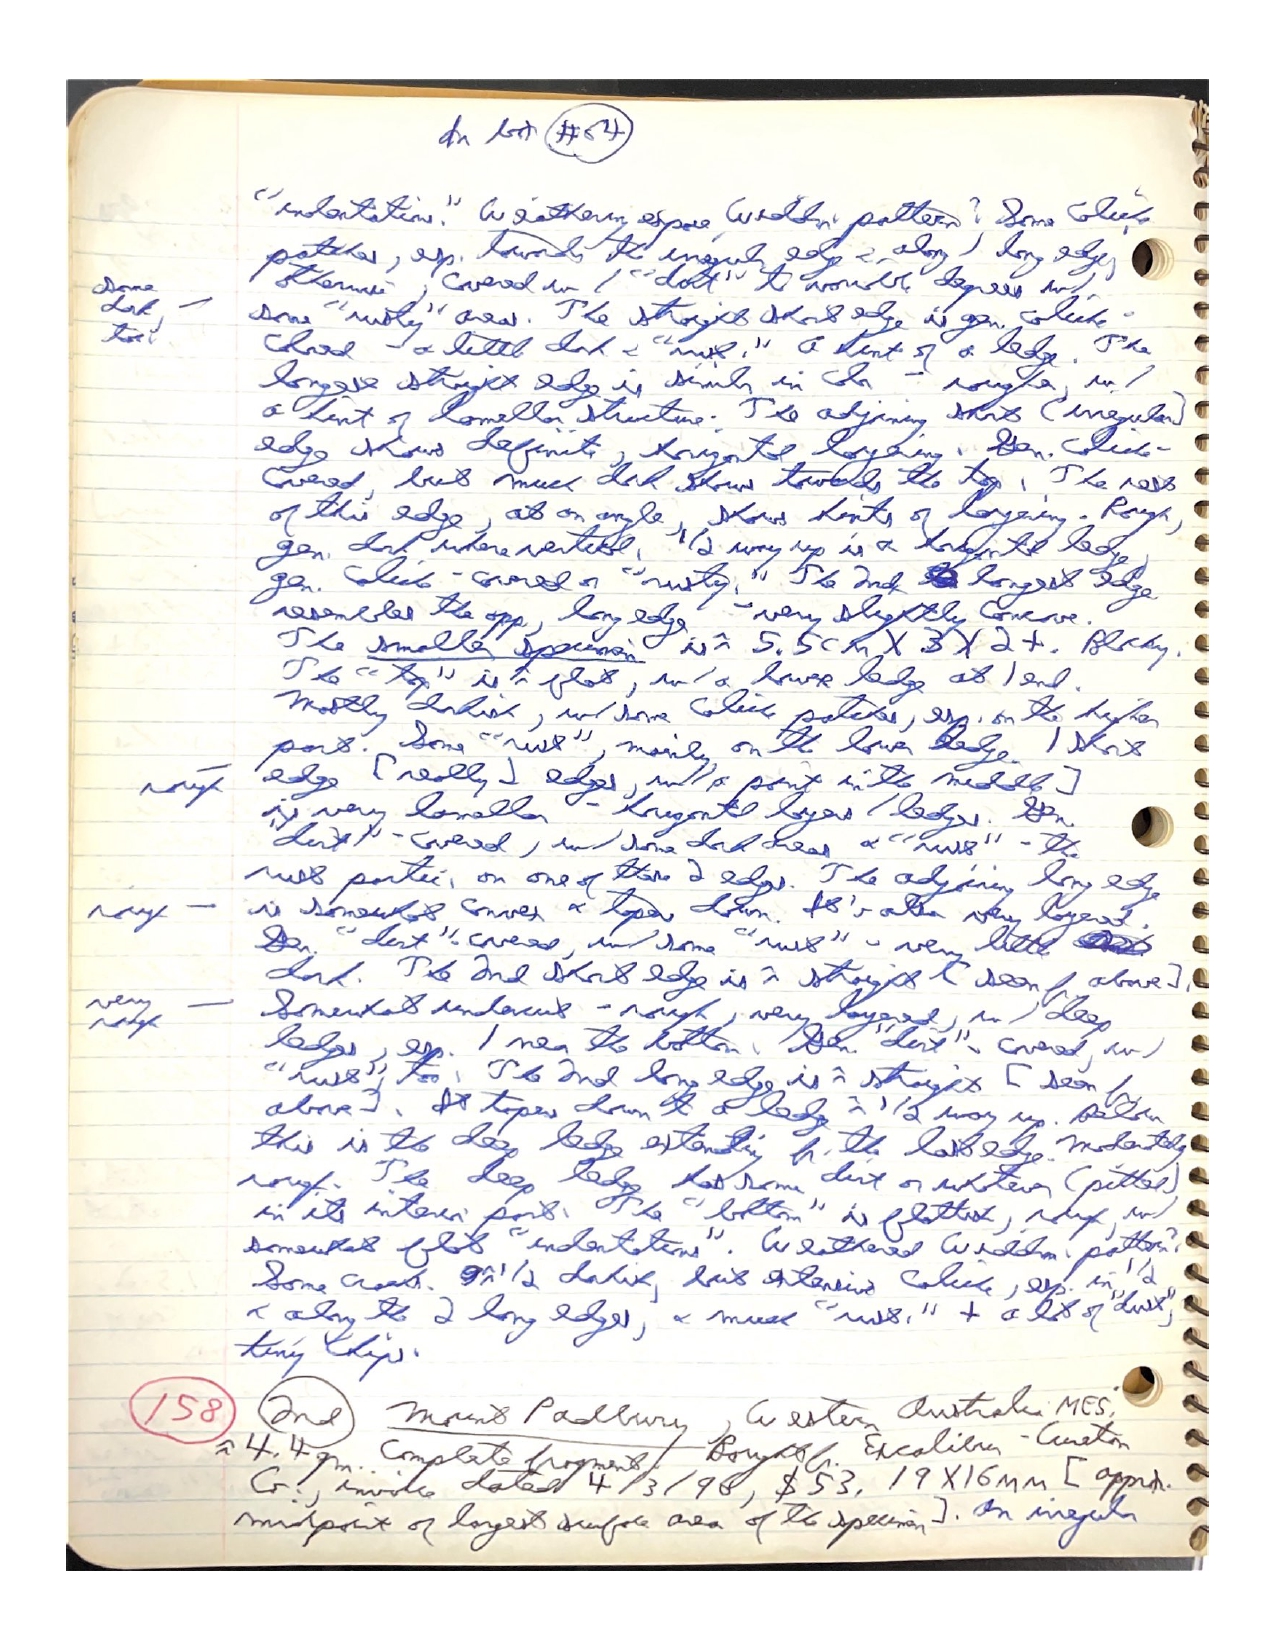 In lot #54
"indentations." Weathering expose Widdm. pattern? Some caliche
patches, esp. towards the irregular edge & along 1 long edge,
otherwise, covered w/ "dirt" to variable degrees w/
some dark, too! — some "rusty" areas. The straight short edge is gen. caliche-
covered — a little dark & "rust." A hint of a ledge. The
longest straight edge is similar in color — rougher, w/
a hint of lamellar structure. The adjoining short (irregular)
edge shows definite, horizontal layering. Gen. caliche-
covered, but much dark shows towards the top. The rest
of this edge, at an angle, shows hints of layering. Rough,
gen. dark where vertical. 1/2 way up is a horizontal ledge,
gen. caliche-covered or "rusty." The 2nd longest edge
resembles the opp. long edge — very slightly concave.
The smaller specimen is ≈ 5.5cm X 3 X 2+. Blocky.
The "top" is ≈ flat, w/ a lower ledge at 1 end.
Mostly darkish, w/ some caliche patches, esp. on the higher
part. Some "rust", mainly on the lower ledge. 1 short
rough — edge [really 2 edges, w/ a point in the middle]
is very lamellar — horizontal layers/ledges. Gen.
"dirt"-covered, w/ some dark areas & "rust" - the
rust partic. on one of these 2 edges. The adjoining long edge
rough — is somewhat convex & tapers down. It's also very layered.
Gen. "dirt"-covered, w/ some "rust" - very little
dark. The 2nd short edge is ≈ straight [seen f. above].
very rough — Somewhat undercut - rough, very layered, w/ deep
ledges, esp. 1 near the bottom. Gen. "dirt"-covered, w/
"rust", too. The 2nd long edge is ≈ straight [seen f.
above]. It tapers down to a ledge ≈ 1/2 way up. Below
this is the deep ledge extending f. the last edge. Moderately
rough. The deep ledge has some dirt or whatever (pitted)
in its interior part. The "bottom" is flattish, rough, w/
somewhat flat "indentations". Weathered Widdm. pattern?
Some cracks. ≈ 1/2 darkish, but extensive caliche, esp. in 1/2
& along the 2 long edges, & much "rust." + a lot of "dust",
tiny chips.
158 2nd Mount Padbury, Western Australia MES,
≈ 4.4 gm. Complete fragment. Bought f. Excalibur-Cureton
Co., invoice dated 4/3/98, $53. 19X16mm [approx.
midpoint of largest surface area of the specimen]. An irregular